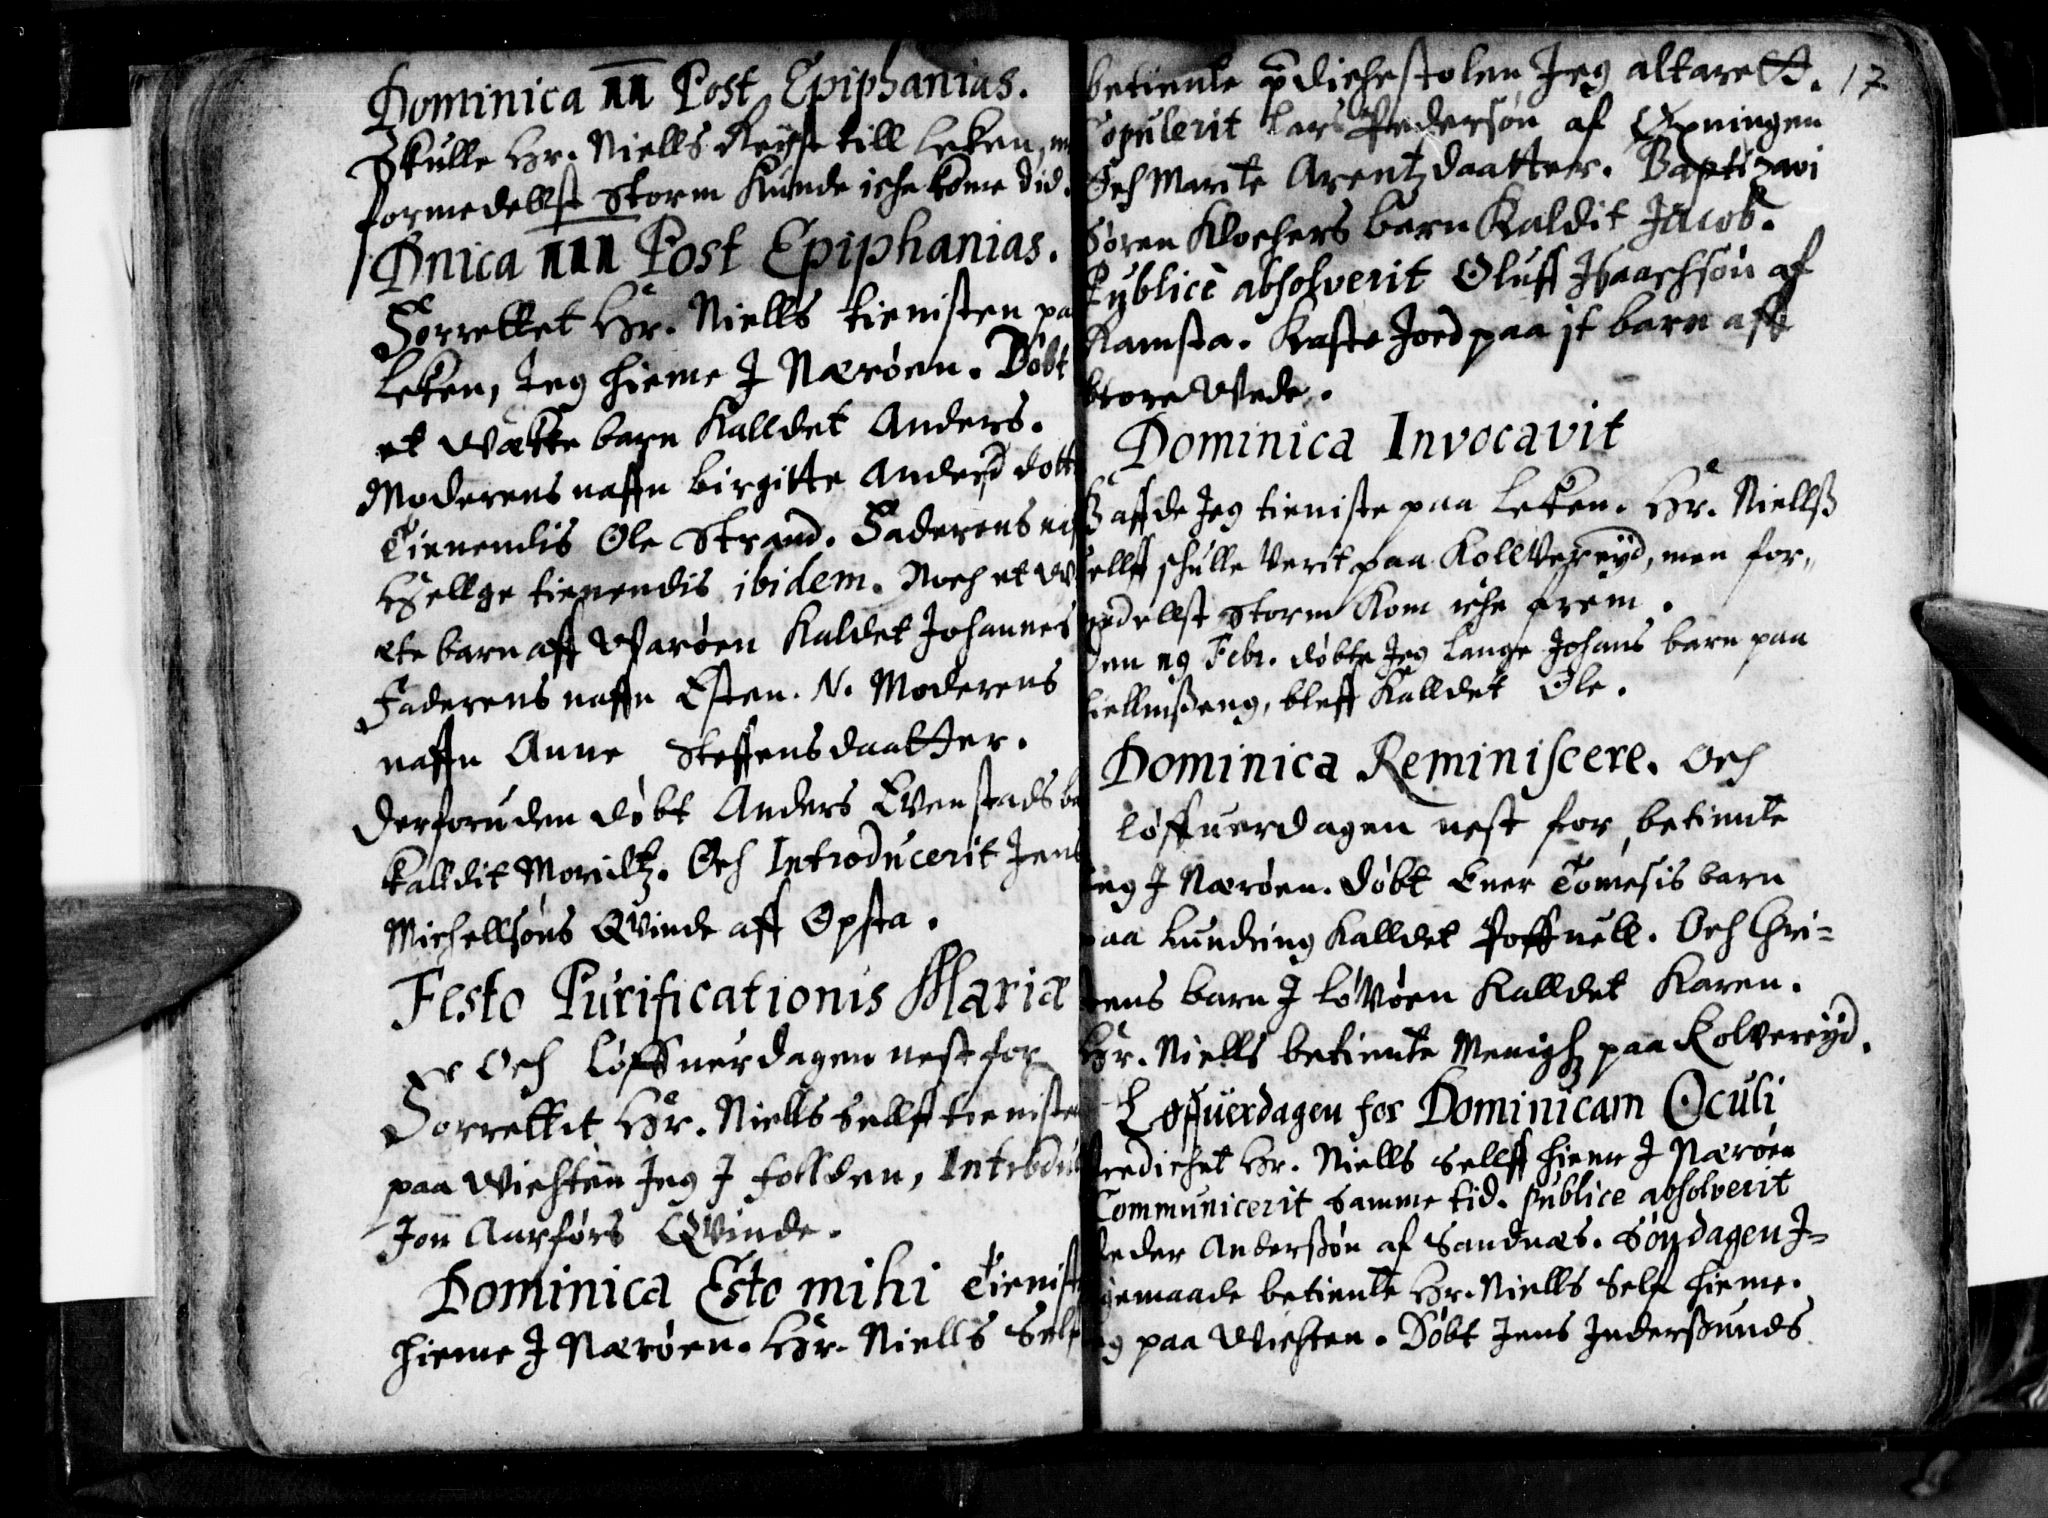 Dominica III Post Epiphanias.
Skulle Hr. Niells Reyst till Leken,
formedellst Storm Kunde iche kome did.
Dnica IIII Post Epiphanias.
Forrettet Hr. Niells tienisten pa
Leken, Jeg hieme J Nærøen. Døbt
et Wætte barn Kalldet Anders.
Moderens naffn birgitte Anders dott
Tienendis Ole Strand. Faderens
Hellge tienendis ibidem. Noch et W
ete barn aff Warøen Kaldet Johannes
Faderens naffn Esten. N. Moderens
naffn Anne Steffensdaatter.
Derforuden døbt Anders Evenstads
kalldit Moridtz. Och Introducerit Jens
Michellsøns Qvinde aff Opsta.
Festo Purificationis Mariæ
Och Løffuerdagen nest for
Forrettit Hr. Niells Sellff tieniste
paa Wichten Jeg J Follden, Introdu
Jon Aarførs Qvinde.
Dominica Esto mihi Tienist
hieme J Nærøen. Hr. Niells Self
17
betiente predichestolen Jeg altarett.
Copulerit Lars Pedersøn af Opningen
Och Marite Arentzdaatter. Baptizavi
Søren Klochers barn Kaldit Jacob.
Publicè absolverit Oluff Jsaachsøn af
Ramsta. Kaste Jord paa it barn aff

Dominica Invocavit
Haffde Jeg tieniste paa Leken. Hr. Niellß
sellff schulle Verit paa Kollvereyd, men for,,
medellst Storm Kom iche frem.
Den 19 Febr. døbte Jeg Lange Johans barn paa
bleff Kalldet Ole.
Dominica Reminiscere. Och
Løffuerdagen nest for, betiente
Jeg J Nærøen. Døbt Ener Tomesis barn
paa Lundring Kalldet Poffuell. Och Chri=
stens barn J Løvøen Kalldet Karen.
Hr. Niells betiente Menigh paa Kolvereyd.
Løffuerdagen for Dominicam Oculi
Predichet Hr. Niells Sellff hieme J Nærøen
Communicerit Samme tid. Publice absolverit
Peder Anderssøn af Sandnæs. Søndagen J=
gemaade betiente Hr. Niells Self hieme.
Jeg paa Wichten. Døbt Jens Jndersunds